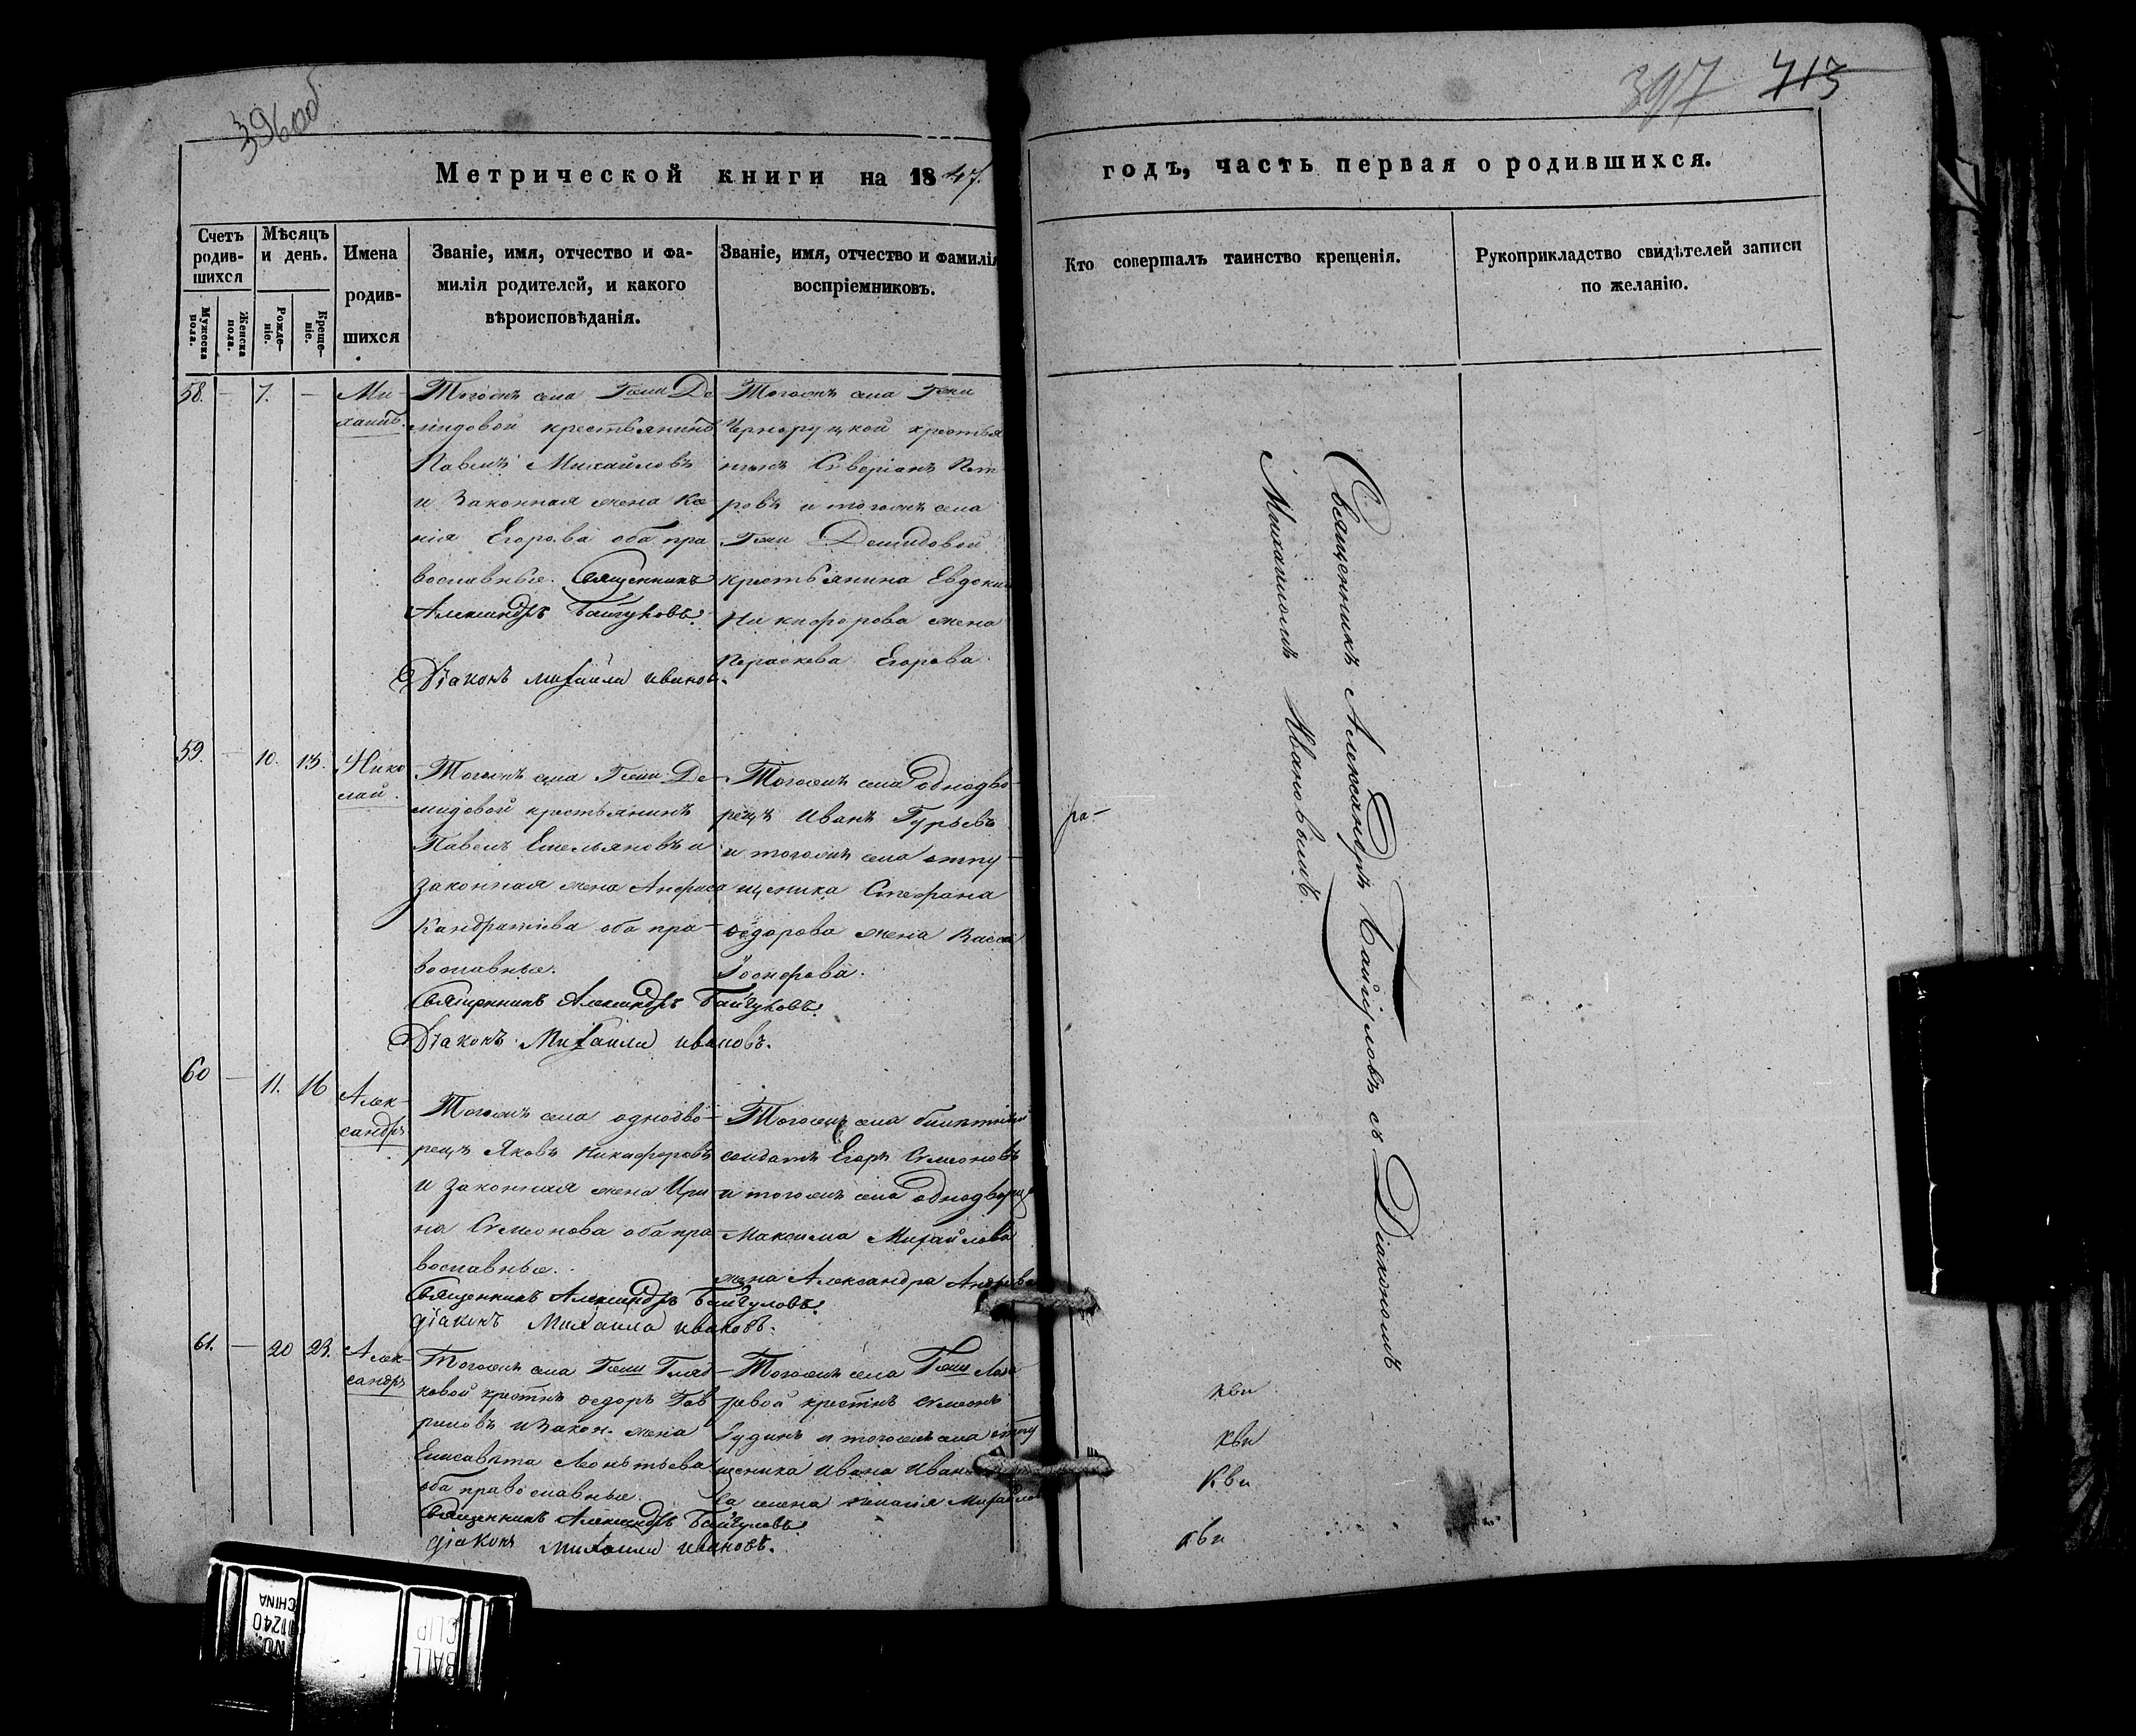 396 об
397 713
Метрической книги на 1847.
годъ, часть первая о родившихся.
Счетъ родив-шихся
Мужеска пола.
Женска пола.
Мѣсяцъ и день.
Рожде-ніе.
Креще-ніе.
Имена
родив-
шихся
Званіе, имя, отчество и фа-
милія родителей, и какого
вѣроисповѣданія.
Званіе, имя, отчество и фамилія
воспріемниковъ.
Кто совершалъ таинство крещенія.
Рукоприкладство свидѣтелей записи
по желанію.
58. — 7. —
Ми-
хаилъ.
Тогожъ села Гжи Де
мидовой крестьянинъ
Павелъ Михайловъ
и Законная жена Ксе
нія Егорова оба пра
вославные. Священникъ
Александръ
Діаконъ Михаилъ Ивановъ.
Тогожъ села Гжи
крестья
нинъ Северіанъ Пет
ровъ и тогожъ села
Гжи Демидовой
крестьянина Евдоким
Никифорова жена
Параскева Егорова.
59. — 10. 13.
Нико
лай.
Тогожъ села Гжи Де-
мидовой крестьянинъ
Павелъ Емельяновъ и
законная жена Анфиса
Кандратіева оба пра-
вославные.
Священникъ Александръ
Діаконъ Михаилъ Ивановъ.
Тогожъ села Однодво-
рецъ Иванъ Гурьевъ
и тогожъ села отпу-
щеника Стефана
Ѳедорова жена Васса
60 — 11. 16
Алек-
сандръ
Тогожъ села однодво-
рецъ Яковъ Никифоровъ
и законная жена Ири-
на Симеонова оба пра-
вославные.
Священникъ Александръ
діаконъ Михаилъ Ивановъ.
Тогожъ села билетный
солдатъ Егоръ Симеоновъ
и тогожъ села Однодворца
Максима Михайлова
жена Александра
61. — 20 23.
Алек-
сандръ
Тогожъ села Гжи Глад-
ковой крестнъ Ѳедоръ Гав
риловъ и Закон. жена
Елисавета Леонтьева
оба православные.
Священникъ Александръ
діаконъ Михаилъ Ивановъ.
Тогожъ села Гжи Лаза
ревой крестнъ Симеонъ
и тогожъ села отпу
щеника Ивана
жена
ра-
Священникъ Александръ съ Діакономъ
Михаиломъ Ивановымъ.